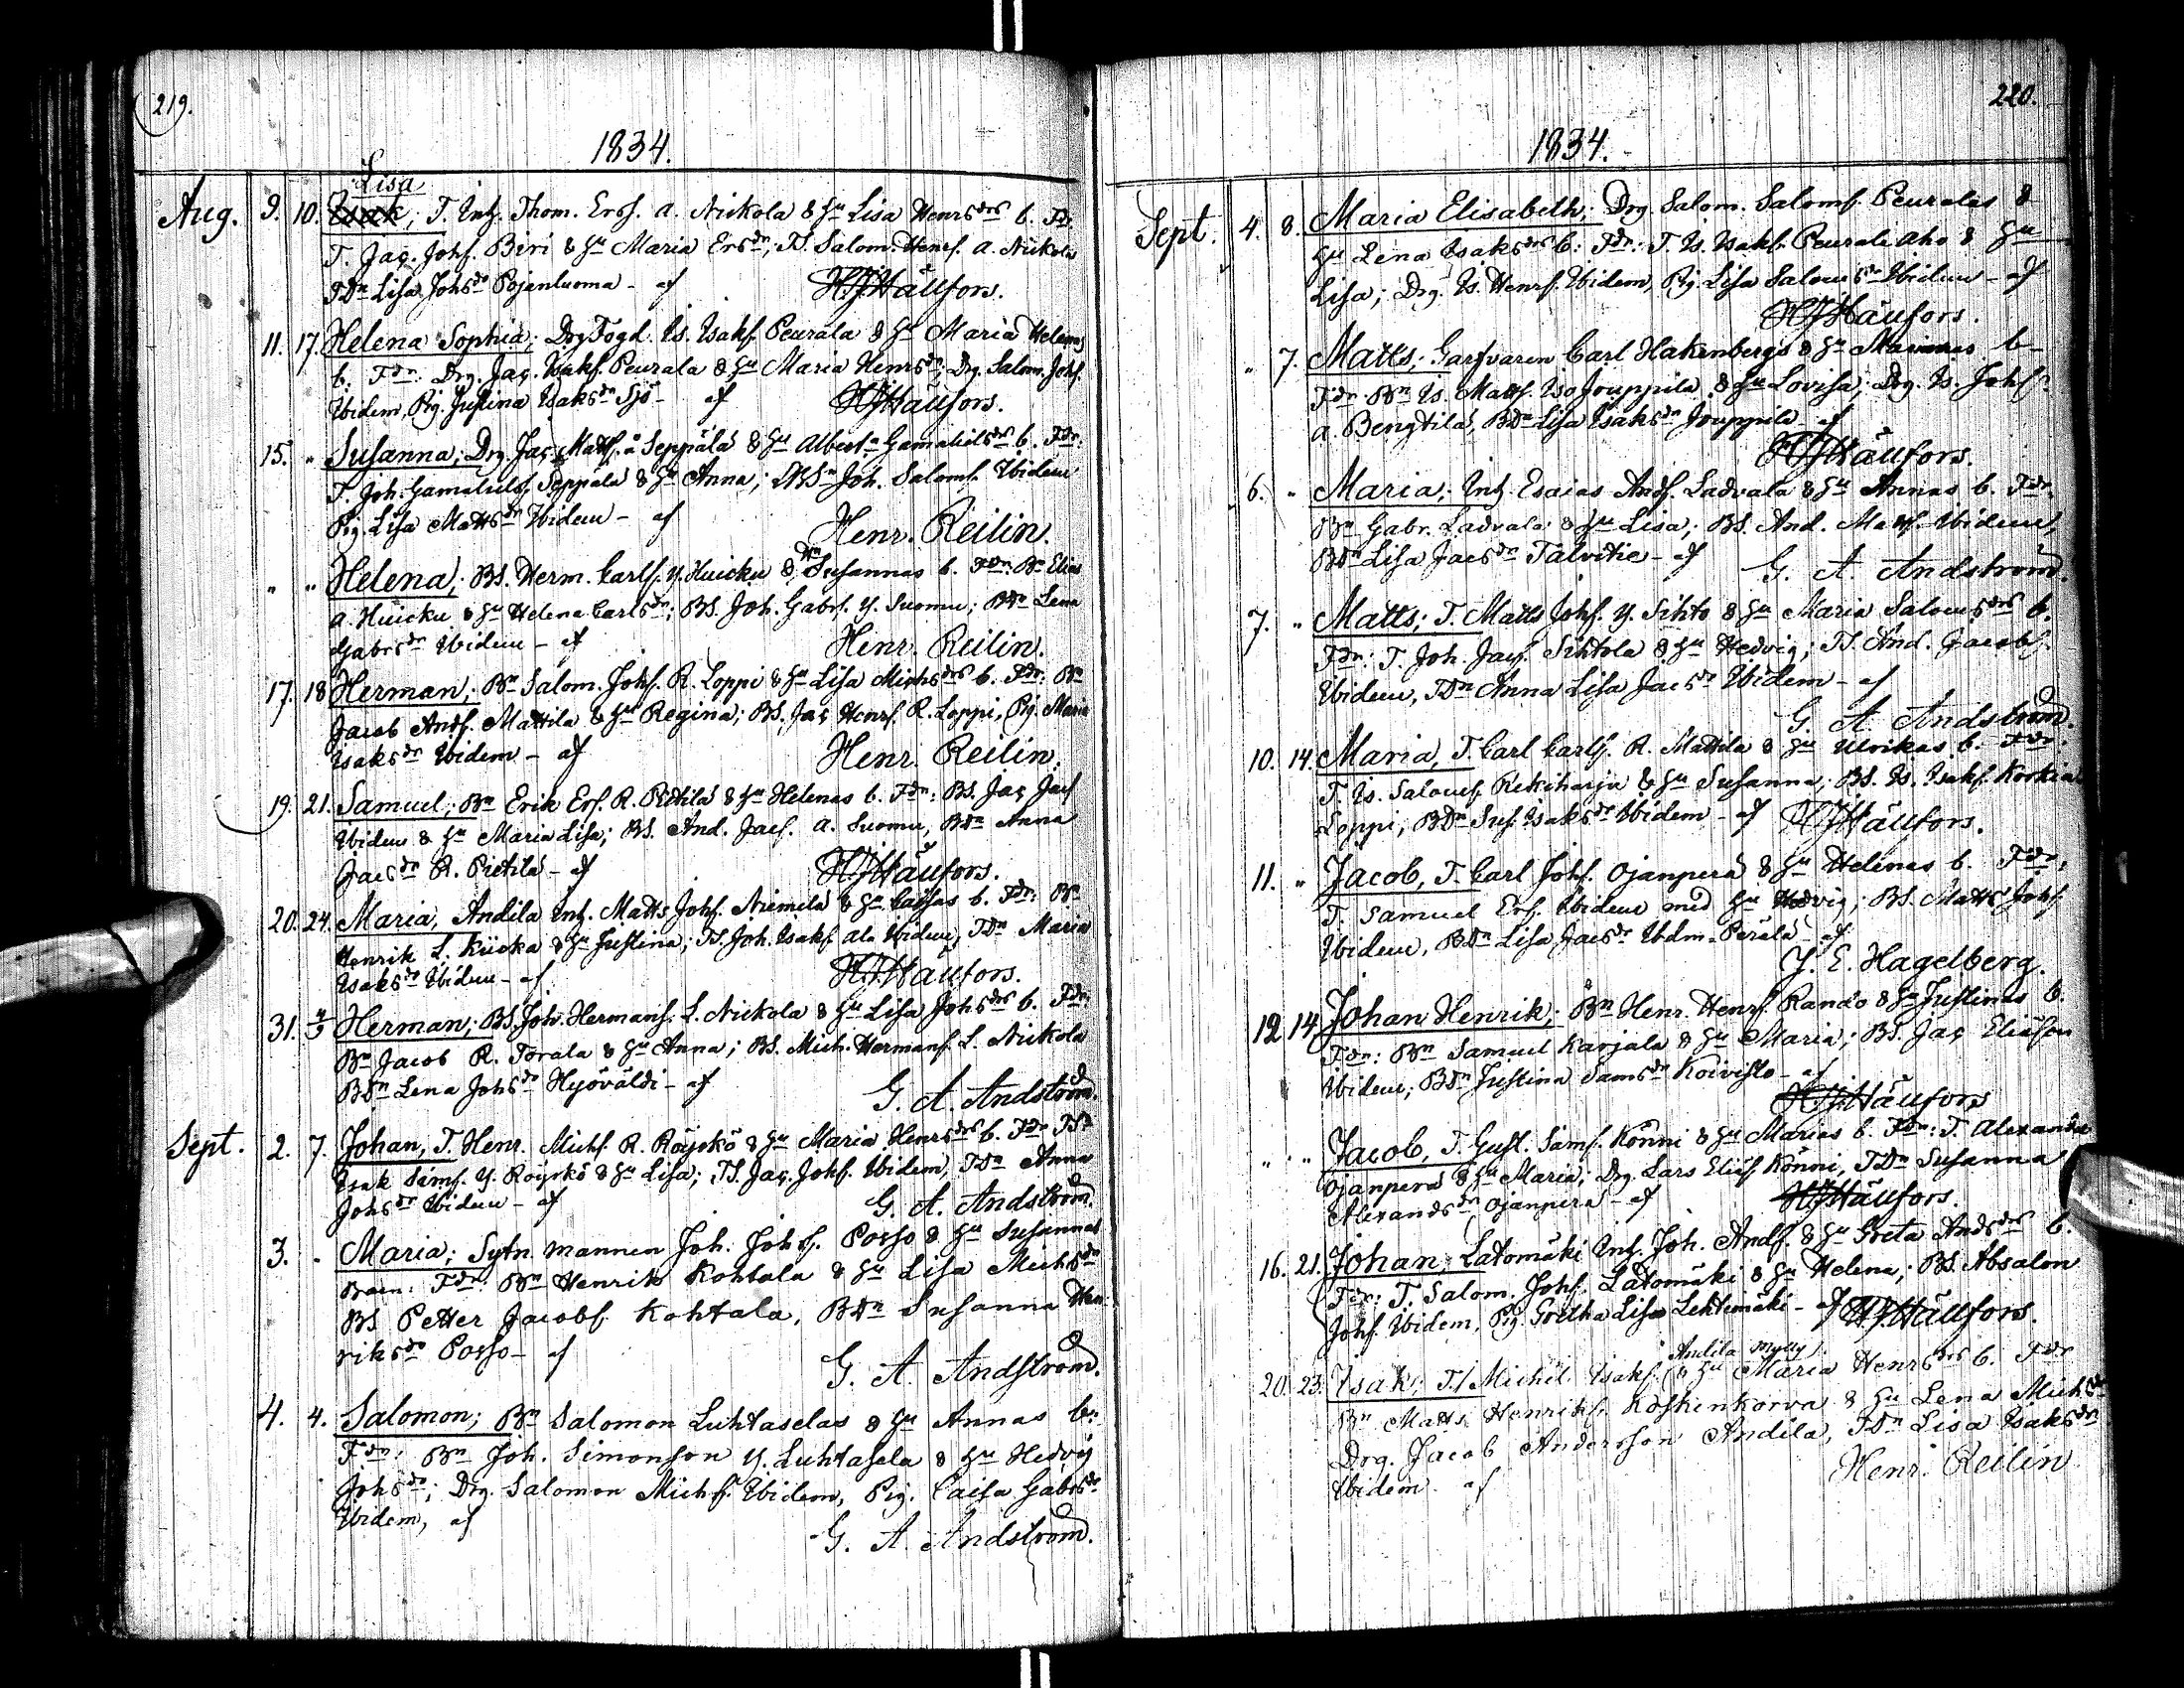 219.
1834.
Lisa
Aug. 9. 10. Isak; T. Inh. Thom. Ersf. a. Nickola & Hu Lisa Henrsdrs b. Fdr.
T. Jac. Johsf. Biri & Hu Maria Ersdr; TS. Salom. Henrsf. a. Nickola
TDr Lisa Johsdr Pojanluoma - af H J Häufors.
11. 17. Helena Sophia; Drg Fogd. Is. Isaksf. Peurala & Hu Maria Helenas
b. Fdr: Drg. Jac. Isaksf. Peurala & Hu Maria Henrsdr; Drg. Salom. Johsf.
Ibidem, Pig. Justina Isaksdr Sjö - af H J Häufors.
15. " Susanna; Drg. Jac. Mattsf. a Seppälä & Hu Albert. Gamalielsdrs b. Fdr:
T. Joh. Gamalielsf. Seppälä & Hu Anna; Joh. Salomsf. Ibidem
Pig. Lisa Mattsdr Ibidem - af Henr. Reilin.
" " Helena; BS. Herm. Carlsf. Y. Huicku & Hu Susannas b. Fdr: Bn Elias
a. Huicku & Hu Helena Carlsdr; BS. Joh. Gabrsf. Y. Suomu; BDr Lena
Gabrsdr Ibidem - af Henr. Reilin.
17. 18 Herman; Bn Salom. Johsf. R. Loppi & Hu Lisa Michsdrs b. Fdr: Bn
Jacob Andsf. Mattila & Hu Regina; BS. Jac Henrsf. R. Loppi, Pig. Maria
Isaksdr Ibidem - af Henr. Reilin.
19. 21. Samuel; Bn Erik Ersf. R. Pietilä & Hu Helenas b. Fdr: BS. Jac Jacsf
Ibidem & Hu Maria Lisa; BS. And. Jacsf. a. Suomu, BDr Anna
Jacsdr R. Pietilä - af H J Häufors.
20. 24. Maria, Andila Inh. Matts Johsf. Niemelä & Hu Caisas b. Fdr: Bn
Henrik L. Kiicka & Hu Justina; TS. Joh. Isaksf. ala Ibidem, TDr Maria
Isaksdr Ibidem - af. H J Häufors.
31. 4/9 Herman; BS. Joh. Hermansf. L. Nickola & Hu Lisa Johsdrs b. Fdr:
Bn Jacob R. Torala & Hu Anna; BS. Mich. Hermansf. L. Nickola
BDr Lena Johsdr Hyöväldi - af G. A. Andström.
Sept. 2. 7. Johan, T. Henr. Michsf. R. Röyskö & Hu Maria Henrsdrs b. Fdr TSn
Isak Simsf. Y. Röyskö & Hu Lisa; TS. Jac. Johsf. Ibidem, TDr Anna
Johsdr Ibidem - af G. A. Andström.
3. " Maria; Sytn. mannen Joh. Johsf. Posso & Hu Susannas
Barn: Fdr: Bn Henrik Kohtala & Hu Lisa Michsdr
BS Petter Jacobsf. Kohtala, BDr Susanna Hen
riksdr Posso - af G. A. Andström.
4. 4. Salomon; Bn Salomon Luhtaselas & Hu Annas b:
Fdr: Bn Joh. Simonson Y. Luhtasela & Hu Hedvig
Johsdr; Drg. Salomon Michsf. Ibidem, Pig. Caisa Gabrsdr
Ibidem, af G. A. Andström.
220.
1834.
Sept. 4. 8. Maria Elisabeth; Drg. Salom. Salomsf. Peuralas &
Hu Lena Isaksdrs b: Fdr: T. Is. Isaksf. Peurala Aho & Hu
Lisa; Drg. Is. Henrsf. Ibidem, Pig. Lisa Salomsdr Ibidem - af
H J Häufors.
" 7. Matts; Garfvaren Carl Hakenbergs & Hu Marias b-
Fdr Bn Is. Mattsf. Iso Jouppila & Hu Lovisa; Drg. Is. Johsf.
a. Bengtilä, BDr Lisa Isaksdr Jouppila - af
H J Häufors.
6. " Maria; Inh. Esaias Andsf. Ladvala & Hu Annas b. Fdr.
Bn Gabr. Ladvala & Hu Lisa; BS. And. Mattsf. Ibidem,
BDr Lisa Jacsdr Talvitie - af G. A. Andström.
7. " Matts; T. Matts Johsf. Y. Sihto & Hu Maria Salomsdrs b.
Fdr: T. Joh. Jacsf. Sihtola & Hu Hedvig; TS. And. Jacobsf.
Ibidem, TDr Anna Lisa Jacsdr Ibidem - af
G. A. Andström.
10. 14. Maria, T. Carl Carlsf. R. Mattila & Hu Ulrikas b. Fdr:
T. Is. Salomsf. Rekiharju & Hu Susanna; BS. Is. Isaksf. Korkia
Loppi, BDr Sus. Isaksdr Ibidem - af H J Häufors.
11. " Jacob, T. Carl Johsf. Ojanperä & Hu Helenas b. Fdr:
T. Samuel Ersf. Ibidem med Hu Hedvig; BS. Matts Johsf.
Ibidem, BDr Lisa Jacsdr Ibdm. Perälä af
J. E. Hagelberg.
12 14 Johan Henrik; Bn Henr. Henrsf. Rando & Hu Justinas b.
Fdr: Bn Samuel Karjala & Hu Maria; BS. Jac Eliasson
Ibidem; BDr Justina Samsdr Koivisto - af
H J Häufors
" " Jacob, T. Gust. Simsf. Könni & Hu Marias b. Fdr: T. Alexander
Ojanperä & Hu Maria; Drg. Lars Eliasf. Könni, TDr Susanna
Alexandsdr Ojanperä - af H J Häufors.
16. 21. Johan; Latomäki Inh. Joh. Andsf. & Hu Greta Andsdrs b.
Fdr: T. Salom. Johsf. Latomäki & Hu Helena; BS. Absalon
Johsf. Ibidem, Pig. Gretha Lisa Lehtimäki - af H J Häufors.
Andila Mylly
20. 23. Isak; T. Michel Isaksf. & Hu Maria Henrsdrs b. Fdr
Bn Matts Henriksf. Koskenkorva & Hu Lena Michsdr
Drg. Jacob Andersson Andila, TDr Lisa Isaksdr
Ibidem - af Henr. Reilin